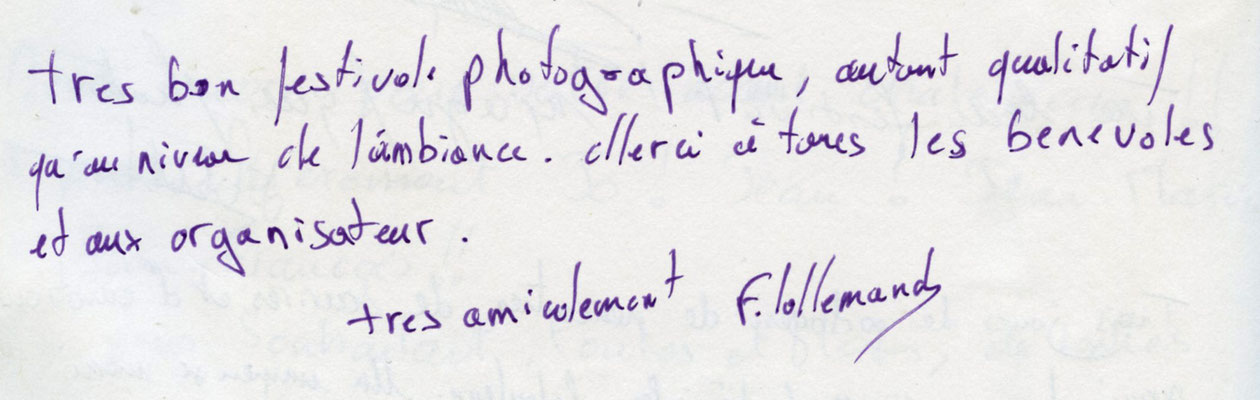 tres bon festival photographique, autant qualitatif
qu'au niveau de l'ambiance. Merci à tous les benevoles
et aux organisateur.
tres amicalement F. lallemand